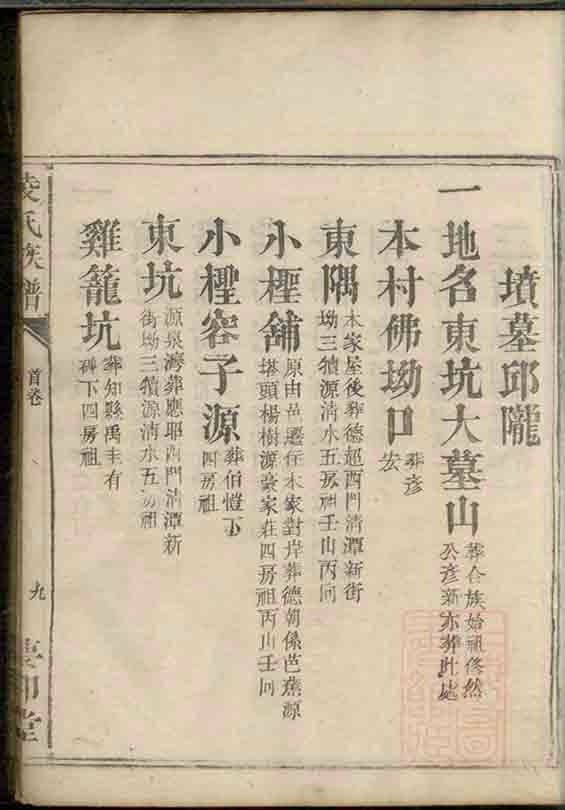 墳墓邱隴
一地名東坑大墓山葬合族始祖修然公彥新亦葬此墓
本村佛坳口葬彥宏
東隅本家屋後葬德超西門清潭新街坳三犢源清水五房祖壬山丙向
小檉舖原由邑遷往本家對岸葬德朝係芭蕉源塔頭楊樹源豪家莊四房祖丙山壬向
小檉容子源葬伯愷下四房祖
東坑源泉灣葬應耶西門清潭新街坳三犢源清水五房祖
雞籠坑葬知縣禹圭有碑下四房祖
凌氏族譜
首卷
九